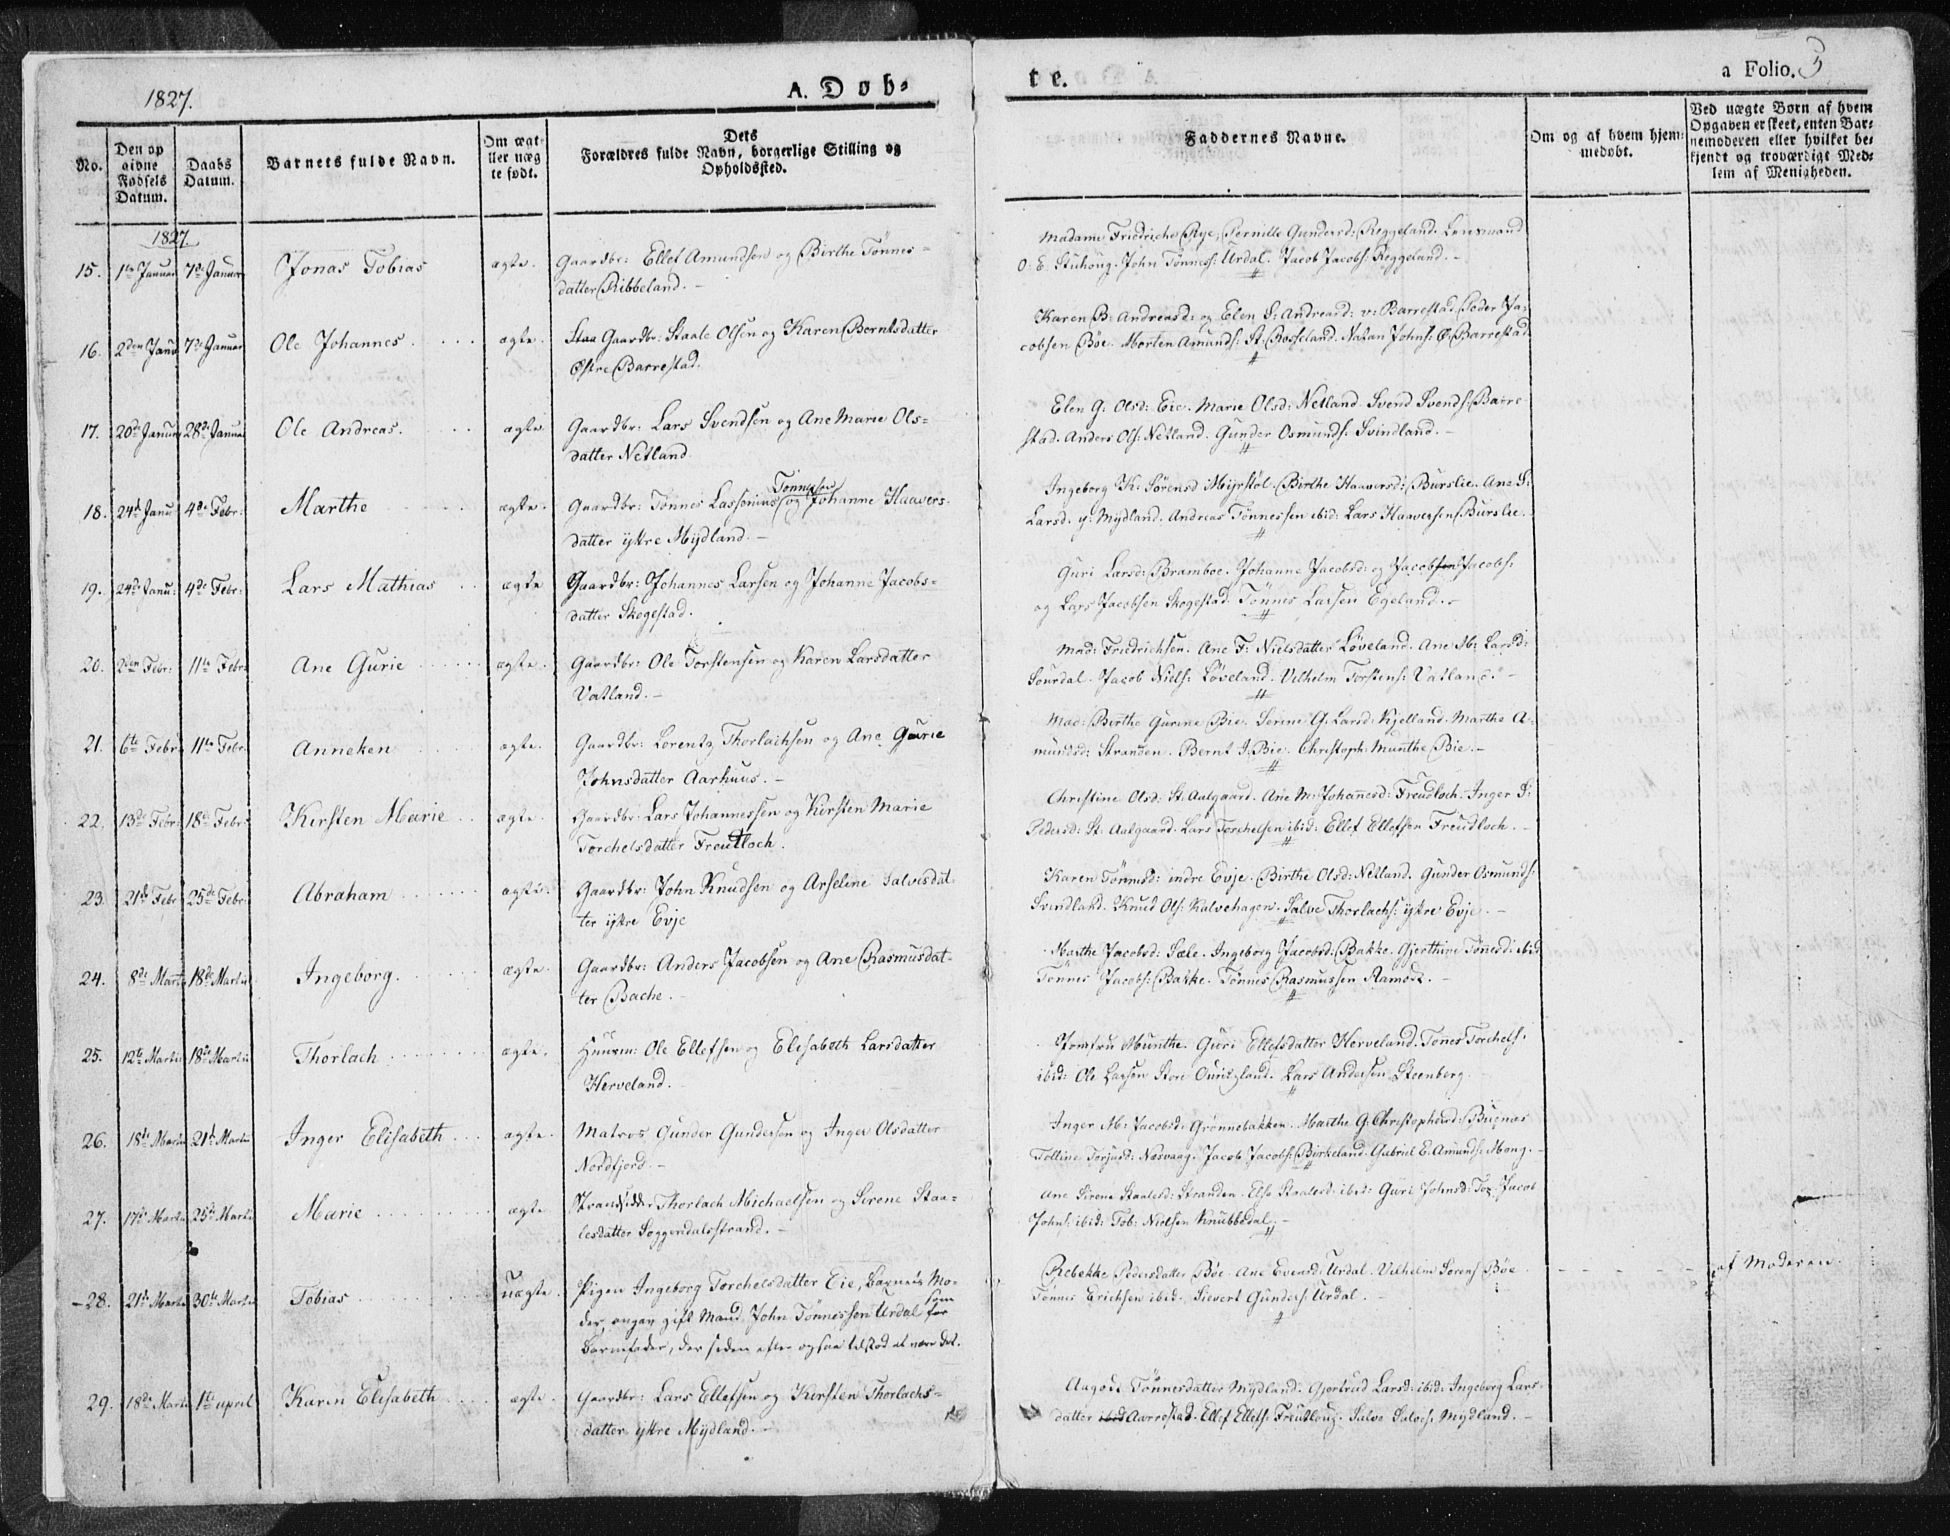 1827.
A. Døb-
te.
a Folio. 3
No.
Den op
givne
Fødsels
Datum.
Daabs
Datum.
Barnets fulde Navn.
Om ægt-
ller uæg
te født.
Dets
Forældres fulde Navn, borgerlige Stilling og
Opholdssted.
Faddernes Navne.
Om og af hvem hjem-
medøbt.
Ved uægte Børn af hvem
Opgaven er skeet, enten Bar-
nemoderen eller hvilket be-
kjendt og troværdigt Med-
lem af Menigheden.
1827.
15. 1te Januar 7de Januar Jonas Tobias ægte. Gaardbr: Ellef Amundsen og Birthe Tønnes-
datter Ribbeland. -
Madame Friedriche Rye, Pernille Gundersd: Reggeland. Lensmand
O. E. Stuhoug. John Tønness: Urdal. Jacob Jacobs: Reggeland. -
16. 2den Janu 7de Januar Ole Johannes. ægte. Staa Gaardbr: Staale Olsen og Karen Berntsdatter
Østre Barrestad.
Karen B: Andreasd: og Elen S: Andreasd: v: Barrestad. Peder Ja-
cobsen Bøe. Morten Amunds: St. Rosseland. Natan Johns: Ø. Barrestad.
17. 20de Januar 28de Januar Ole Andreas. ægte Gaardbr: Lars Svendsen og Ane Marie Ols-
datter Netland.
Elen G: Olsd: Eie. Marie Olsd: Netland. Svend Svends: Barre-
stad. Anders Ols: Netland. Gunder Osmunds: Svindland. -
18. 24de Janu 4de Febr: Marthe ægte. Gaardbr: Tønnes Lassenius Tønnesen og Johanne Haavers-
datter yttre Mydland. -
Ingeborg K: Sørensd Myrstøl. Birthe Haaversd: Burslie. Ane S:
Larsd. y: Mydland. Andreas Tønnessen ibid: Lars Haaversen Burslie.
19. 24de Janu: 4de Febr: Lars Mathias ægte Gaardbr: Johannes Larsen og Johanne Jacobs-
datter Skogestad.
Guri Larsd: Bramboe. Johanne Jacobsd: og Jacob Jacobs:
og Lars Jacobsen Skogestad. Tønnes Larsen Egeland. -
20. 2den Febr: 11te Febr: Ane Gurie ægte. Gaardbr: Ole Torstensen og Karen Larsdatter
Vatland. -
Mad: Fridrichsen. Ane F: Nielsdatter Løveland. Ane M: Larsd:
Sourdal. Jacob Niels: Løveland. Vilhelm Torstens: Vatland. -
21. 6te Febr: 11te Febr: Anneken ægte. Gaardbr: Lorentz Thorlachsen og Ane Gurie
Johnsdatter Aarhuus. -
Mad: Birthe Gurine Bie. Serine G. Larsd: Kjelland. Marthe A-
mundsd: Stranden. Bernt J. Bie. Christoph: Munthe Bie. -
22. 13de Febr: 18de Febr: Kirsten Marie ægte. Gaardbr: Lars Johannessen og Kirsten Marie
Torchelsdatter Freutloch.
Christine Olsd: St. Aalgaard. Ane M: Johanesd: Freudloch. Inger S:
Pedersd: St. Aalgaard. Lars Torchelsen ibid: Ellef Ellefsen Freudloch. -
23. 21de Febr 25de Febr: Abraham ægte. Gaardbr: John Knudsen og Arseline Salvesdat-
ter yttre Evje
Karen Tønnesd: indre Evje. Birthe Olsd: Netland. Gunder Osmunds:
Svindland. Knud Ols: Kalvehagen. Salve Thorlachs: yttre Evje. -
24. 8de Marti 18de Marti Ingeborg. ægte. Gaardbr: Anders Jacobsen og Ane Rasmusdat-
ter Bache. -
Marthe Jacobsd: Sæle. Ingeborg Jacobsd: Bakke. Gjerthine Tønnesd: ibid
Tønnes Jacobs: Bakke. Tønnes Rasmussen Aamodt. -
25. 12te Marti 18de Marti Thorlach ægte. Huusm: Ole Ellefsen og Elisabeth Larsdatter
Herveland.
Jomfru Munthe. Guri Ellefsdatter Herveland. Tønes Torchels:
ibid: Ole Larsen Store Ourigland. Lars Andersen Steenberg.
26. 18de Marti 21de Marti Inger Elisabeth ægte. Matros Gunder Gundersen og Inger Olsdatter
Nordfjord. -
Inger M: Jacobsd: Grønnebakken. Marthe G. Christophersd: Buenæs
Tolline Torjusd: Næsvaag. Jacob Jacobs: Birkeland. Gabriel E. Amunds. Mong. -
27. 17de Marti 25de Marti Marie ægte Strandsidder Thorlach Michaelsen og Serene Staa-
lesdatter Soggendalsstrand. -
Ane Serene Staalesd: Stranden. Else Staalesd: ibid: Guri Johnsd: Jacob
Johns: ibid: Tob: Nielsen Knubbedal; -
28. 21de Marti 30te Marti Tobias uægte. Pigen Ingeborg Torchelsdatter Eie, Barnets Mo-
der, angav gift Mand John Tønnessen Urdal som for
Barnefader, der siden efter ogsaa tilstod at være det.
Rebekke Pedersdatter Bøe. Ane Evensd: Urdal. Vilhelm Sørens Bøe.
Tønnes Erichsen ibid. Sievert Gunders: Urdal. -
af Moderen.
29. 18de Marti 1te april Karen Elisabeth ægte. Gaardbr: Lars Ellefsen og Kirsten Thorlachs-
datter yttre Mydland. -
Aagodt Tønnesdatter Mydland. Gjertrud Larsd: ibid: Ingeborg Lars-
datter ibid Aarrestad. Ellef Ellefs: Freutloug. Salve Salves: Mydland. -